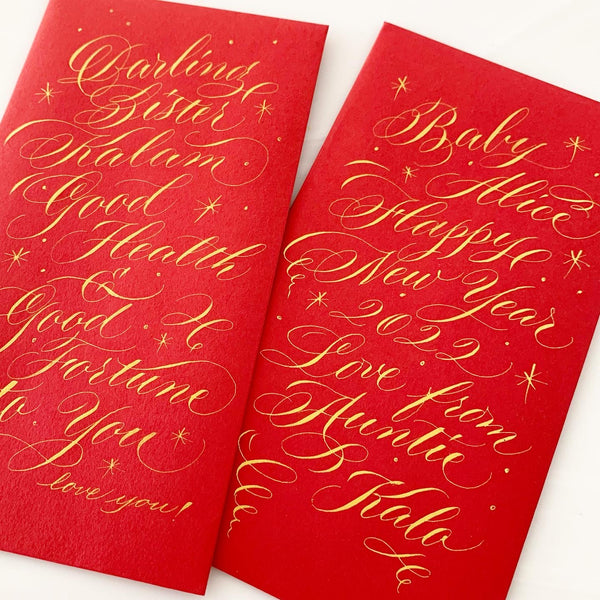 Darling
Sister
Kalam
Good
Health
&
Good
Fortune
to You
love you!
Baby
Alice
Happy
New Year
2022
Love from
Auntie
Kalo